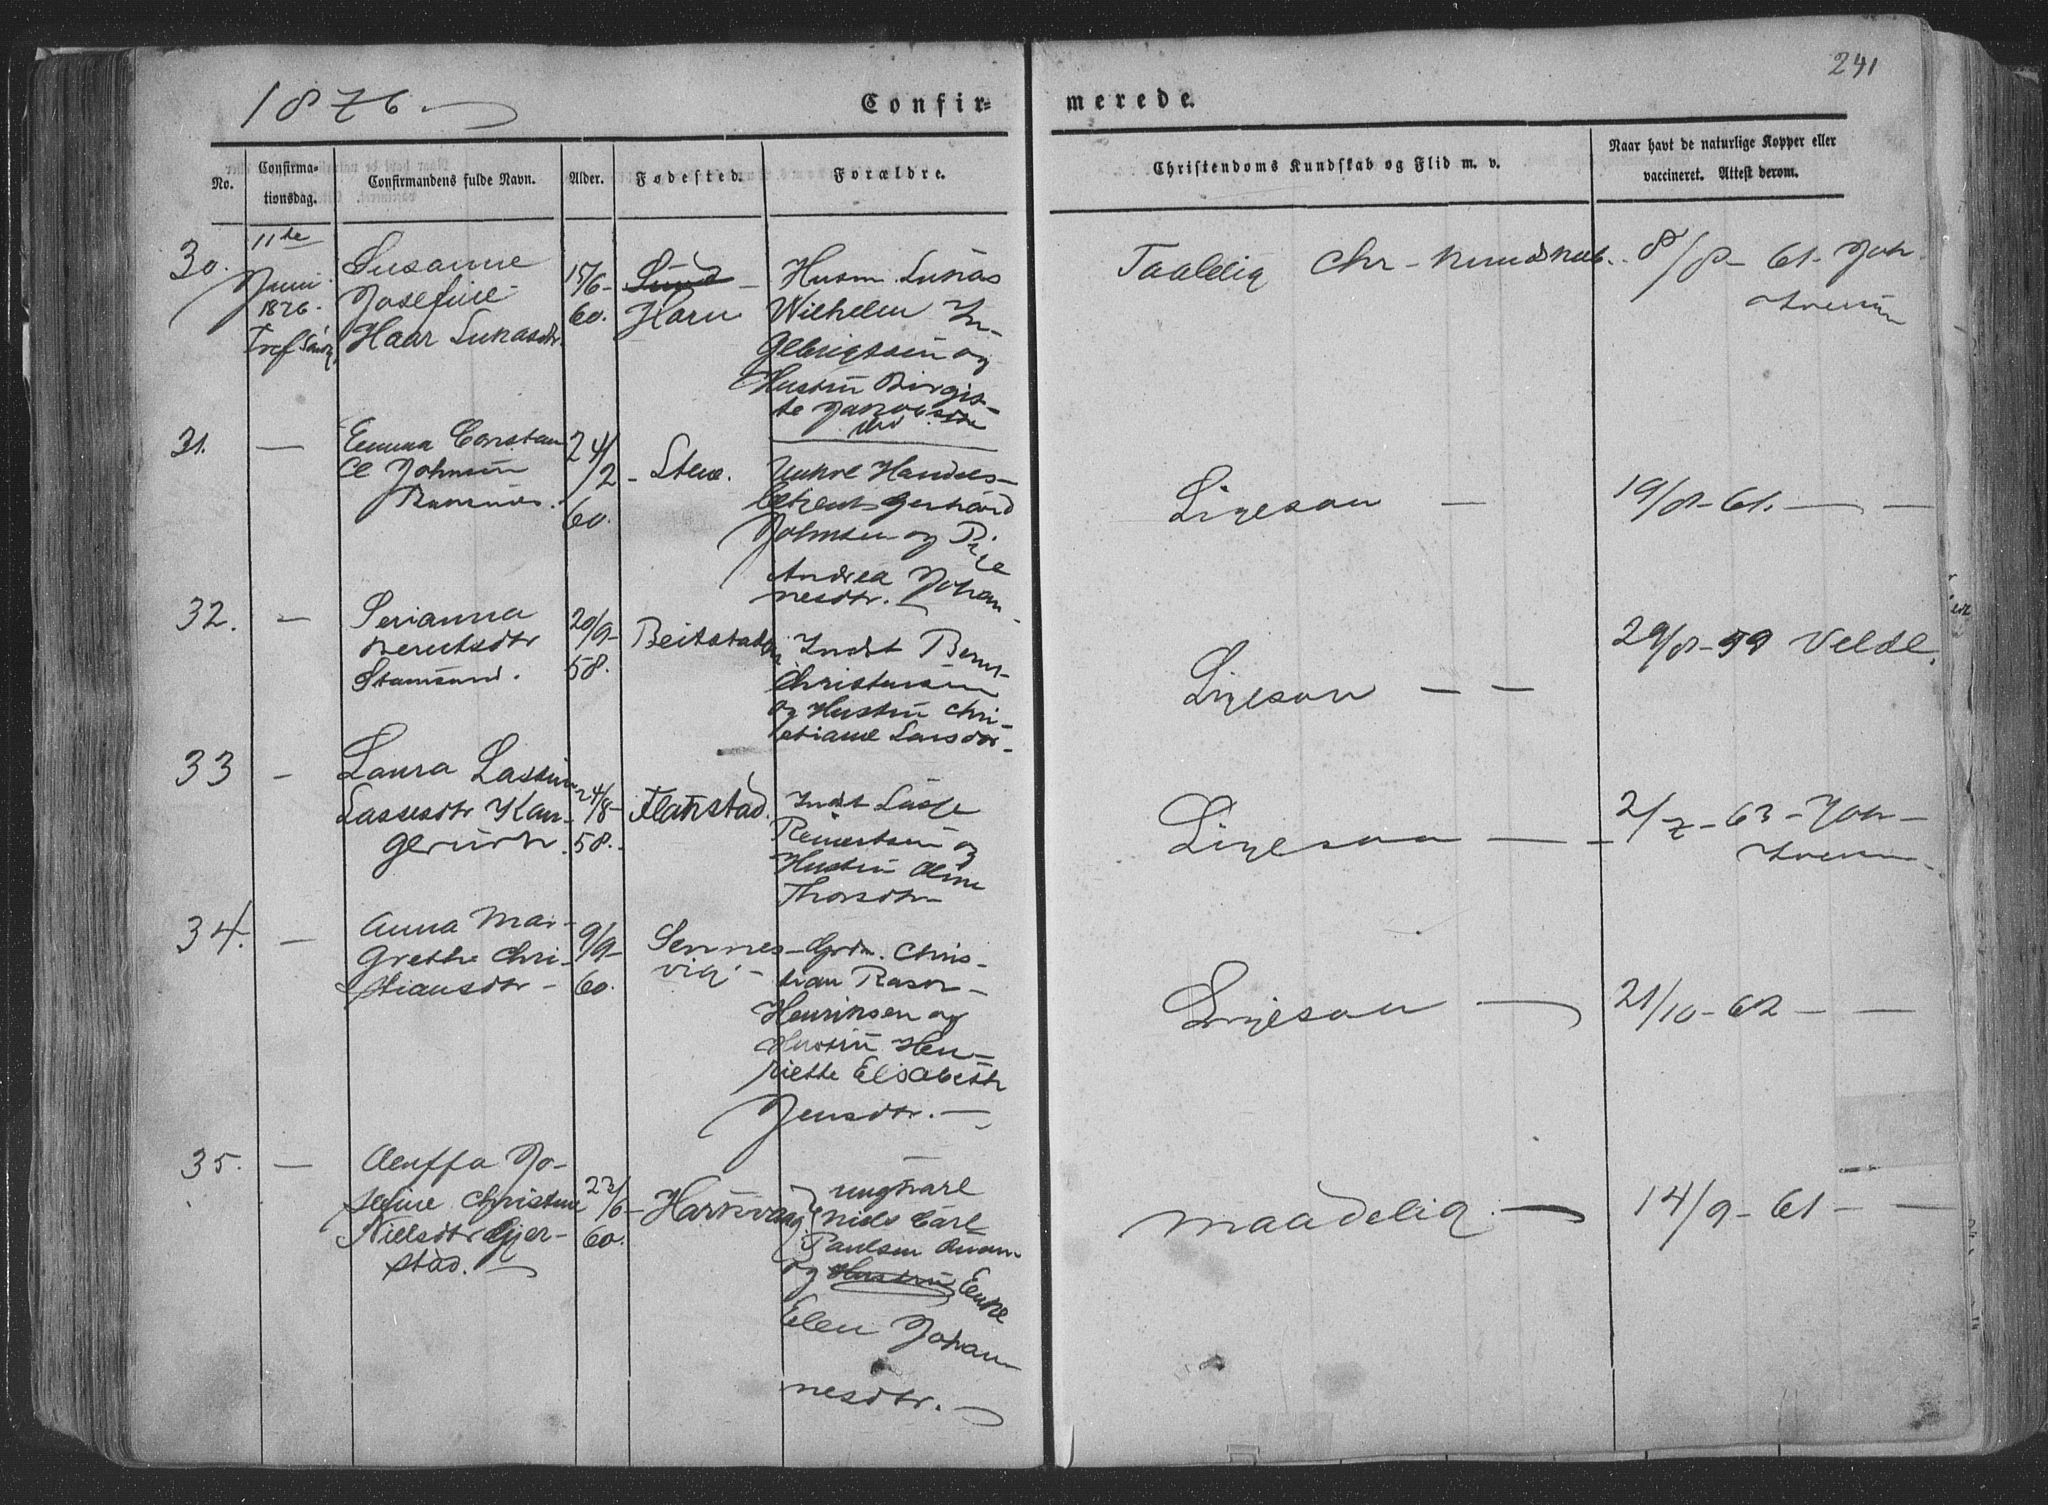 241
1876
Confirmerede.
No.
Confirmationsdag.
Confirmandens fulde Navn.
Alder.
Fødested.
Forældre.
Christendoms Kundskab og Flid m. v.
Naar havt de naturlige Kopper eller
vaccineret. Attest derom.
30.
11te
Juni
1876.
Susanne
Josefine
Haar Lukasdtr.
15/6-
60.
Sund
Horn
Husm. Lukas
Wilhelm In-
gebrigtsen og
Hustru Birgit-
te Jakobsdtr
Taalelig Chr-kundskab.
8/8-61. Joh
Iversen
31.
—
Emma Constan
ce Johnsen
Ramnæs.
24/2-
60.
Stene.
Ugkrl Handels-
betjent Gerhard
Johnsen og Pige
Andrea Johan
nesdtr.
Ligesaa —
19/8-61. — —
32.
—
Serianna
Berntsdtr
Stamsund.
20/9-
58.
Beitstaden
Indst Bernt
Christensen
og Hustru Chri-
stiane Larsdtr-
Ligesaa — —
29/8-59 Veldl.
33
—
Laura Lastine
Lassesdtr Kan-
gerurdtr.
24/8-
58.
Flakstad.
Indst Lasse
Reinertsen og
Hustru Oline
Thorsdtr
Ligesaa — —
2/7-63-Joh-
Iversen
34.
—
Anna Mar-
grethe Chri-
stiansdtr -
9/9-
60.
Sennes-
vig -
Grdm. Chris-
tian Rasor-
Henriksen og
Hustru Hen-
riette Elisabeth
Jensdtr. —
Ligesaa —
21/10-62 - —
35.
—
Jo-
sefine Christine
Nielsdtr Gjer-
stad. —
23/6-
60.
Hartvaag
ungkarl
Niels Carl
Paulsen
og Hustru Enke
Elen Johan
nesdtr. —
maadelig. —
14/9-61- —